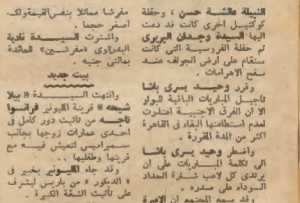 النبيلة عائشة حسن » وحفلة
كوكتيل أخرى كانت قد دعت
اليها السيدة وجدان البربري
ثم حفلة الفروسية التى كانت
ستقام على أرض الجولف عند
سفح الاهرامات .
وقرر وحيد يسرى باشا
تأجيل المباريات الباقية للبولو
الا أن الفرق الاجنبية اعتذرت
لعدم استطاعتها البقاء فى القاهرة
أكثر من المدة المقررة .
واضطر وحيد يسرى باشا
الى تكملة المباريات على أن
يرتدى كل لاعب شارة الحداد
السوداء على صدره .
مفرشا مماثلا بنفس القيمة ولكن
أصغر حجما .
واشترت السيدة نادية
البدراوى « مفرشين » المائدة
بمائتى جنيه .
بيت جديد
وانتهت السيدة « بيلا
شيحه » قرينة المليونير فرانسوا
تاجه من تأثيث دور كامل فى
احدى عمارات زوجها بجانب
سميراميس لتعيش فيه مع
قرينها وطفليها . .
وقد جاء المليونير بخبير فى
« الديكور » من باريس ليشرف
على تأثيث الشقة الكبيرة .